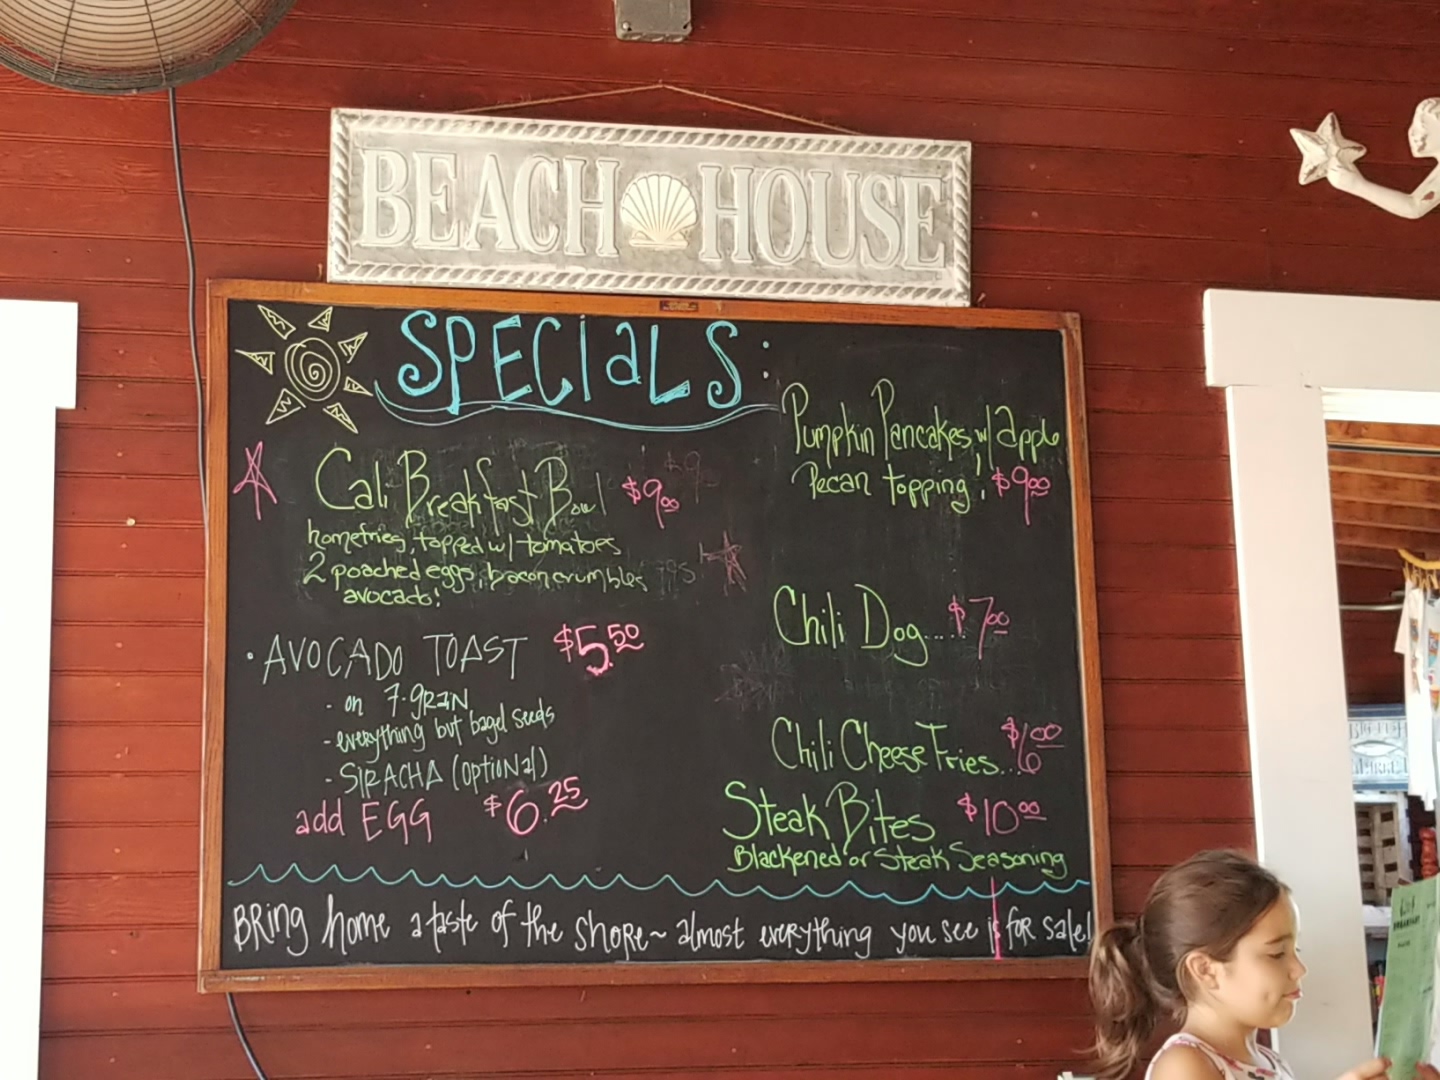 BEACH HOUSE
SPECIALS:
Cali Breakfast Bowl $9.00
homefries, topped w/ tomatoes
2 poached eggs, bacon crumbles
avocado!
· AVOCADO TOAST $5.50
- on 7-GRAIN
- everything but bagel seeds
- SIRACHA (OPTIONAL)
add EGG $6.25
Pumpkin Pancakes, w/ apple
Pecan topping, $9.00
Chili Dog..... $7.00
Chili Cheese Fries... $6.00
Steak Bites $10.00
Blackened or Steak Seasoning
BRING home a taste of the SHORE~ almost everything you see is for sale!